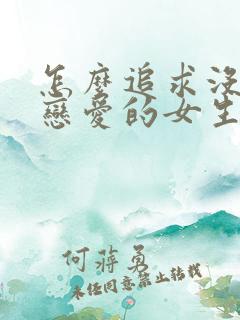 怎麼追求沒
戀愛的女生
何蔣勇
未經同意禁止轉載